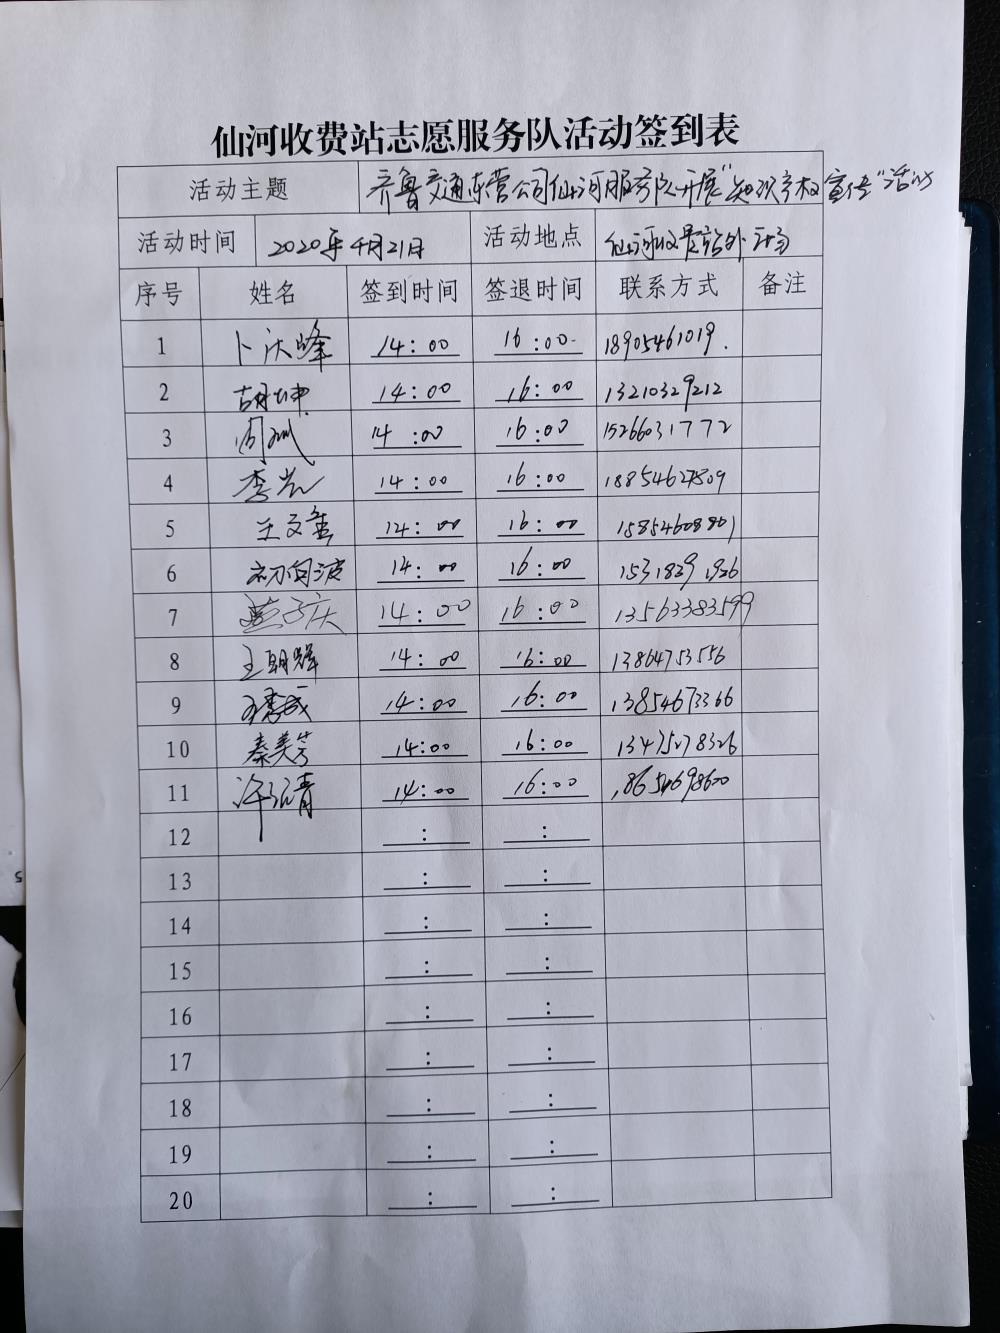 仙河收费站志愿服务队活动签到表
活动主题 齐鲁交通东营公司仙河服务队开展"知识产权宣传"活动
活动时间 2020年4月21日 活动地点 仙河收费站外广场
序号 姓名 签到时间 签退时间 联系方式 备注
1 卜庆峰 14:00 16:00 18905461019
2 胡坤 14:00 16:00 13210329212
3 周斌 14:00 16:00 15266031772
4 李 14:00 16:00 18854627809
5 王文 14:00 16:00 15854608801
6 初向波 14:00 16:00 15318291926
7 燕子庆 14:00 16:00 13563383599
8 王朝辉 14:00 16:00 13864753556
9 14:00 16:00 13854673366
10 秦美芳 14:00 16:00 13475278326
11 许 清 14:00 16:00 18654698600
12 : :
13 : :
14 : :
15 : :
16 : :
17 : :
18 : :
19 : :
20 : :